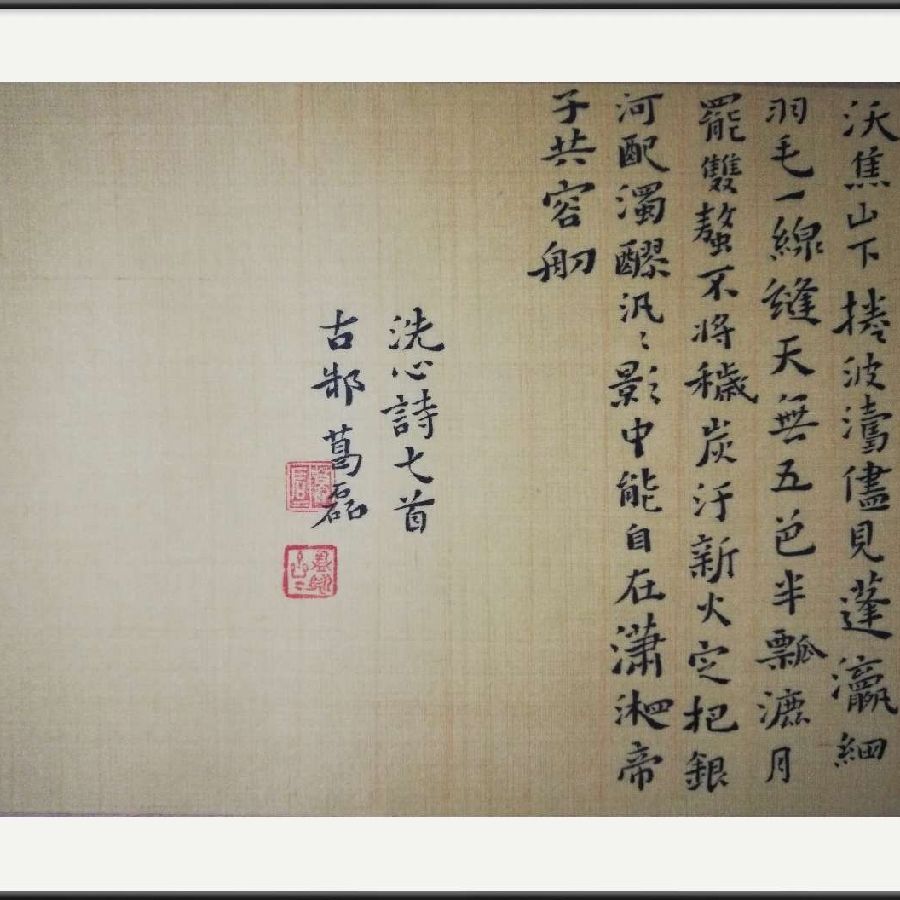 沃焦山下捲波濤儘見蓬瀛細
羽毛一線縫天無五色半瓢漉月
罷雙螯不將穢炭汙新火定把銀
河配濁醪汎〻影中能自在瀟湘帝
子共容舠
洗心詩七首
古邾葛磊